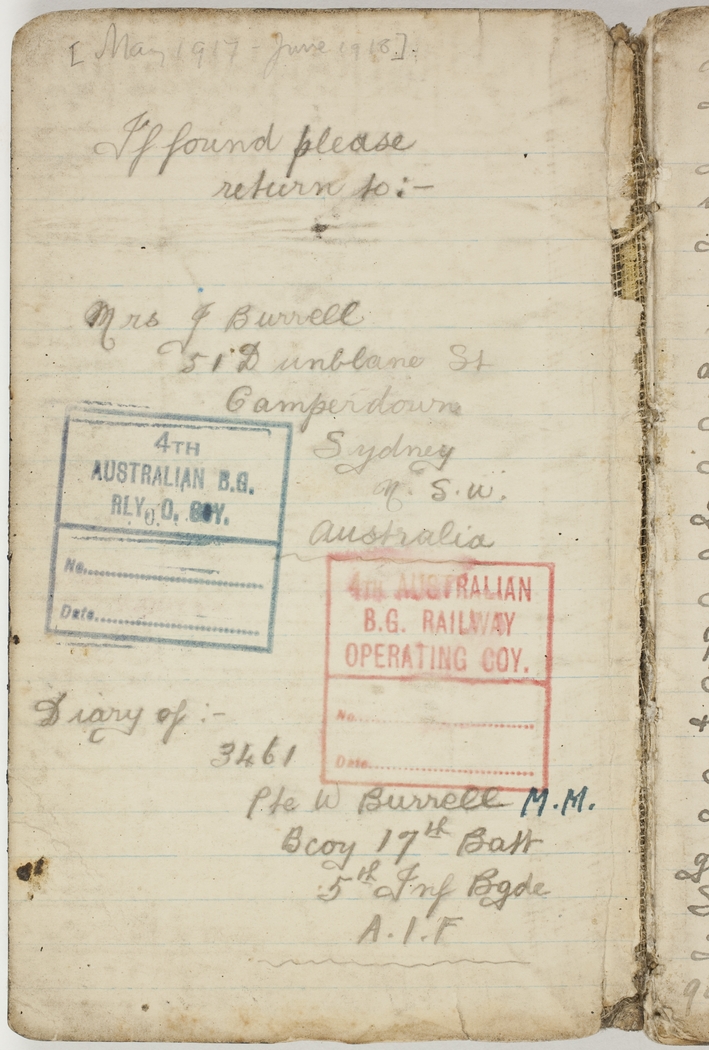 [May 1917 - June 1918].
If found please
return to:-
Mrs J Burrell
51 Dunblane St
Camperdown
Sydney
N.S.W.
Australia
4TH
AUSTRALIAN B.G.
RLY. O. COY.
No.
Date.
4TH AUSTRALIAN
B.G. RAILWAY
OPERATING COY.
No.
Date.
Diary of :-
3461
Pte W Burrell M.M.
Bcoy 17th Batt
5th Inf Bgde
A.I.F